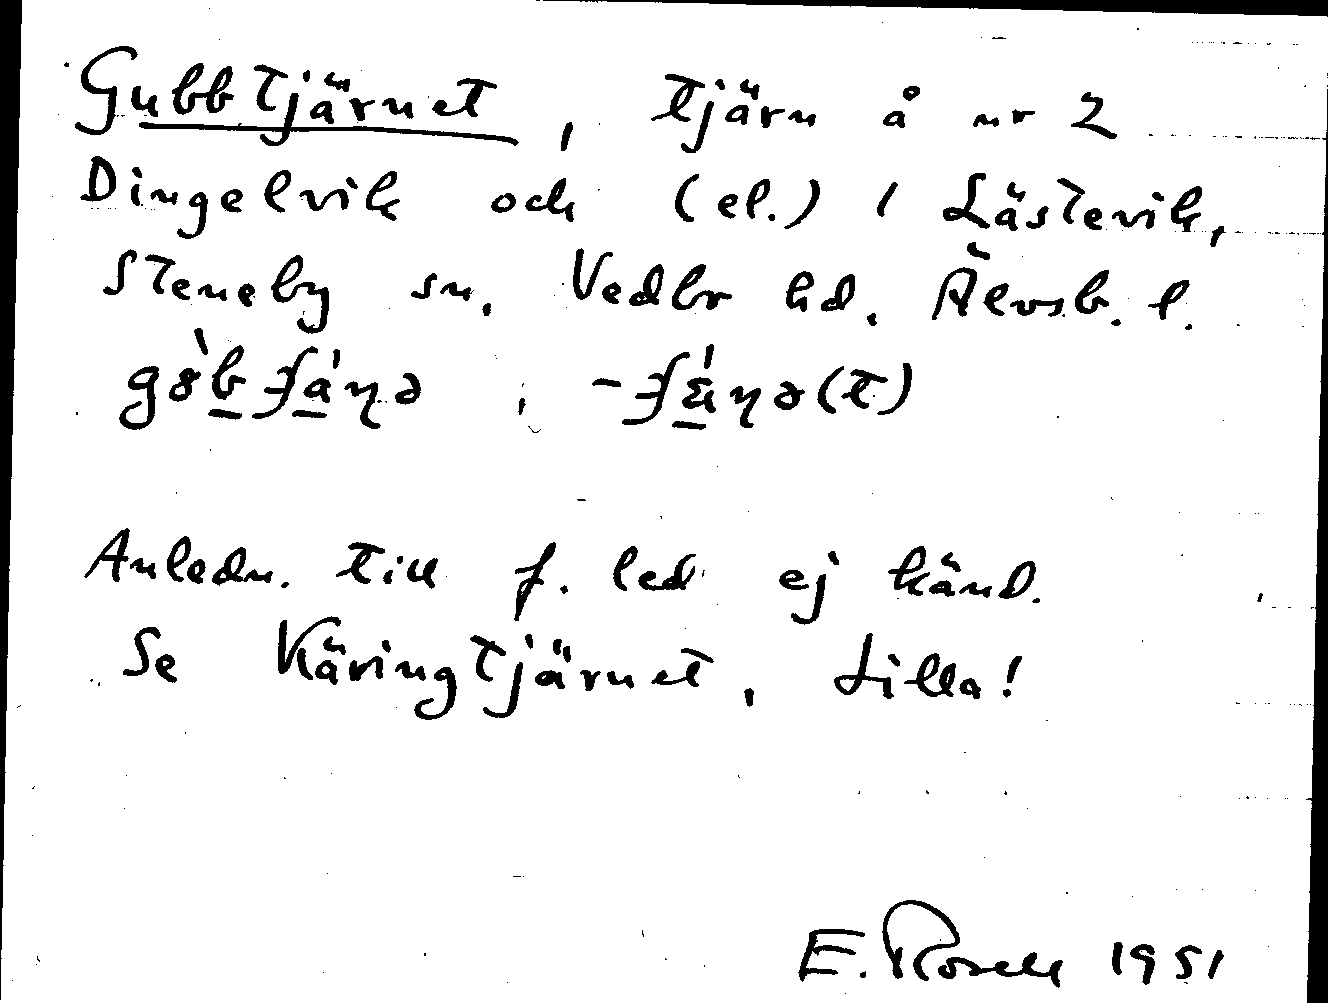 Gubbtjärnet, tjärn å nr 2
Dingelvik och (el.) 1 Låstevik,
Steneby sn. Vedbo hd. Älvsb. l.
Anledn. till f. led ej känd.
Se Käringtjärnet, Lilla!
E. Rosell 1951